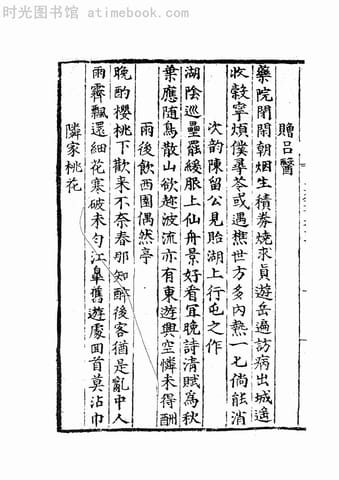 时光图书馆 atimebook.com
贈呂醫
藥院閉閒朝烟生積券燒求真遊岳遍訪病出城遙
收穀寧煩僕尋苓或遇樵世方多內熱一七倘能消
次韵陳留公見貽湖上行屯之作
湖陰巡壘罷緩服上仙舟景好看冝晚詩清賦為秋
葉應随鳥散山欲趂波流亦有東遊興空憐未得酬
雨後飲西園偶然亭
晚酌櫻桃下歡来不奈春那知醉後客猶是亂中人
雨霽飄還細花寒破未匀江臯舊遊處回首莫沾巾
隣家桃花